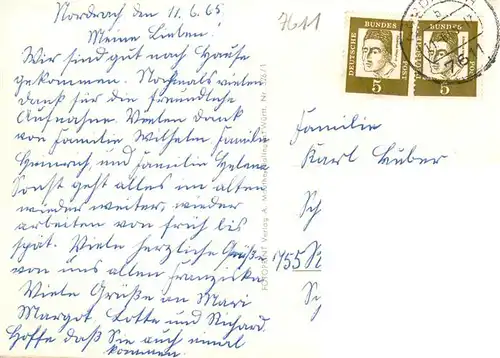 Nordrach den 11.6.65
Meine Lieben!
Wir sind gut nach Hause
gekommen. Nochmals vielen
dank für die freundliche
Aufnahme. Vielen dank
von Familie Wilhelm, Familie
und Familie Helene
Sonst geht alles im alten
wieder weiter, wieder
arbeiten von früh bis
spät. Viele herzliche Grüße
von uns allen Franziska
Viele Grüße an Mari
Margot, Lotte und Richard.
Hoffe daß Sie auch einmal
kommen.
7611
DEUTSCHE BUNDESPOST
5
DEUTSCHE BUNDESPOST
5
7611
FOTOPRINT Verlag A.
Familie
Karl Huber
Sch
7755
Sch